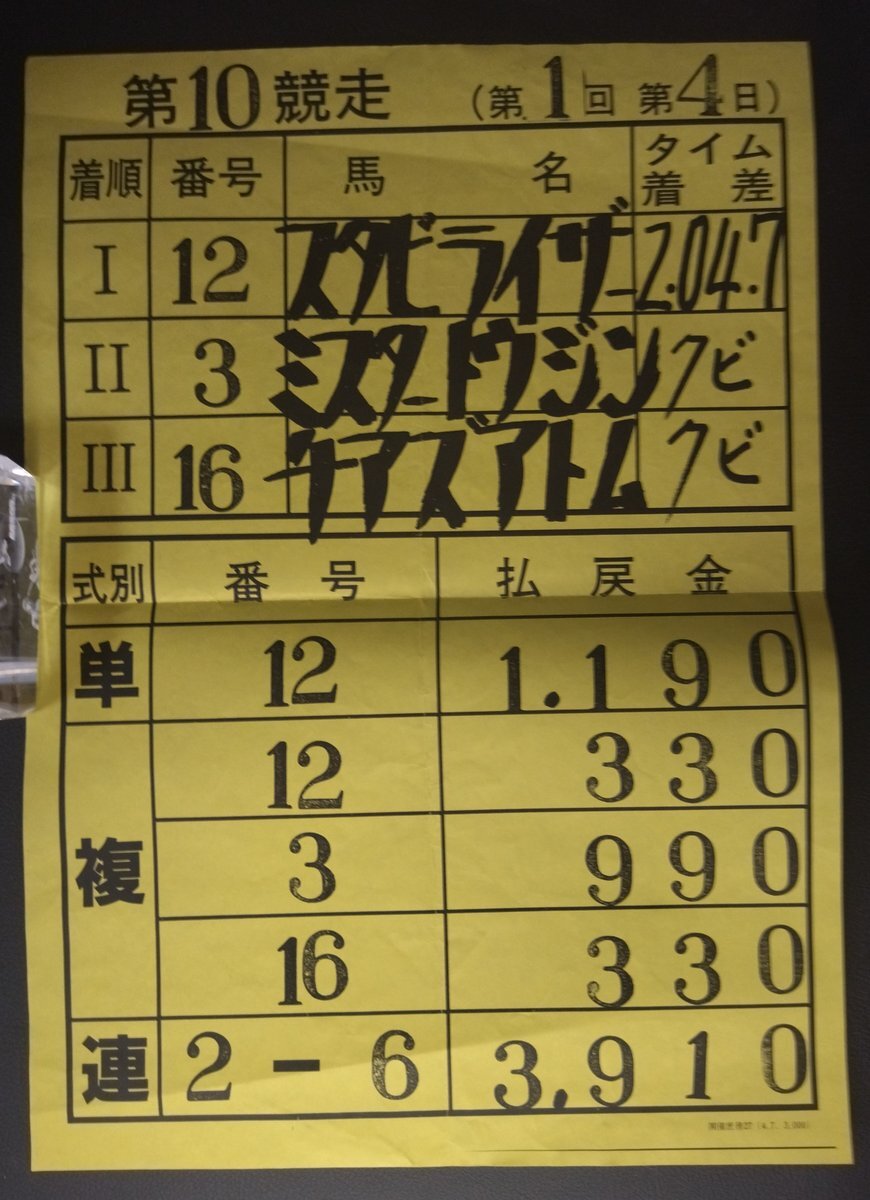 第10競走 (第1回 第4日)
着順 番号 馬名 タイム着差
I 12 スタビライザー 2.04.7
II 3 ミスタートウジン クビ
III 16 ケアズアトム クビ
式別 番号 払戻金
単 12 1.190
複 12 330
3 990
16 330
連 2-6 3.910